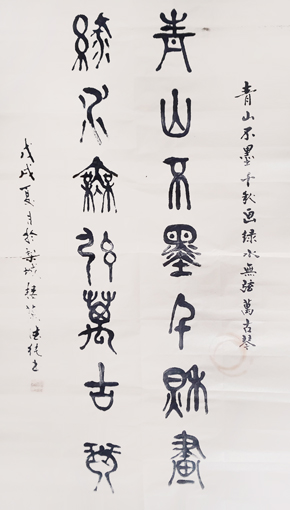 青山不墨千秋画绿水無弦萬古琴
青山不墨千秋畫
綠水無弦萬古琴
戊戌夏月於